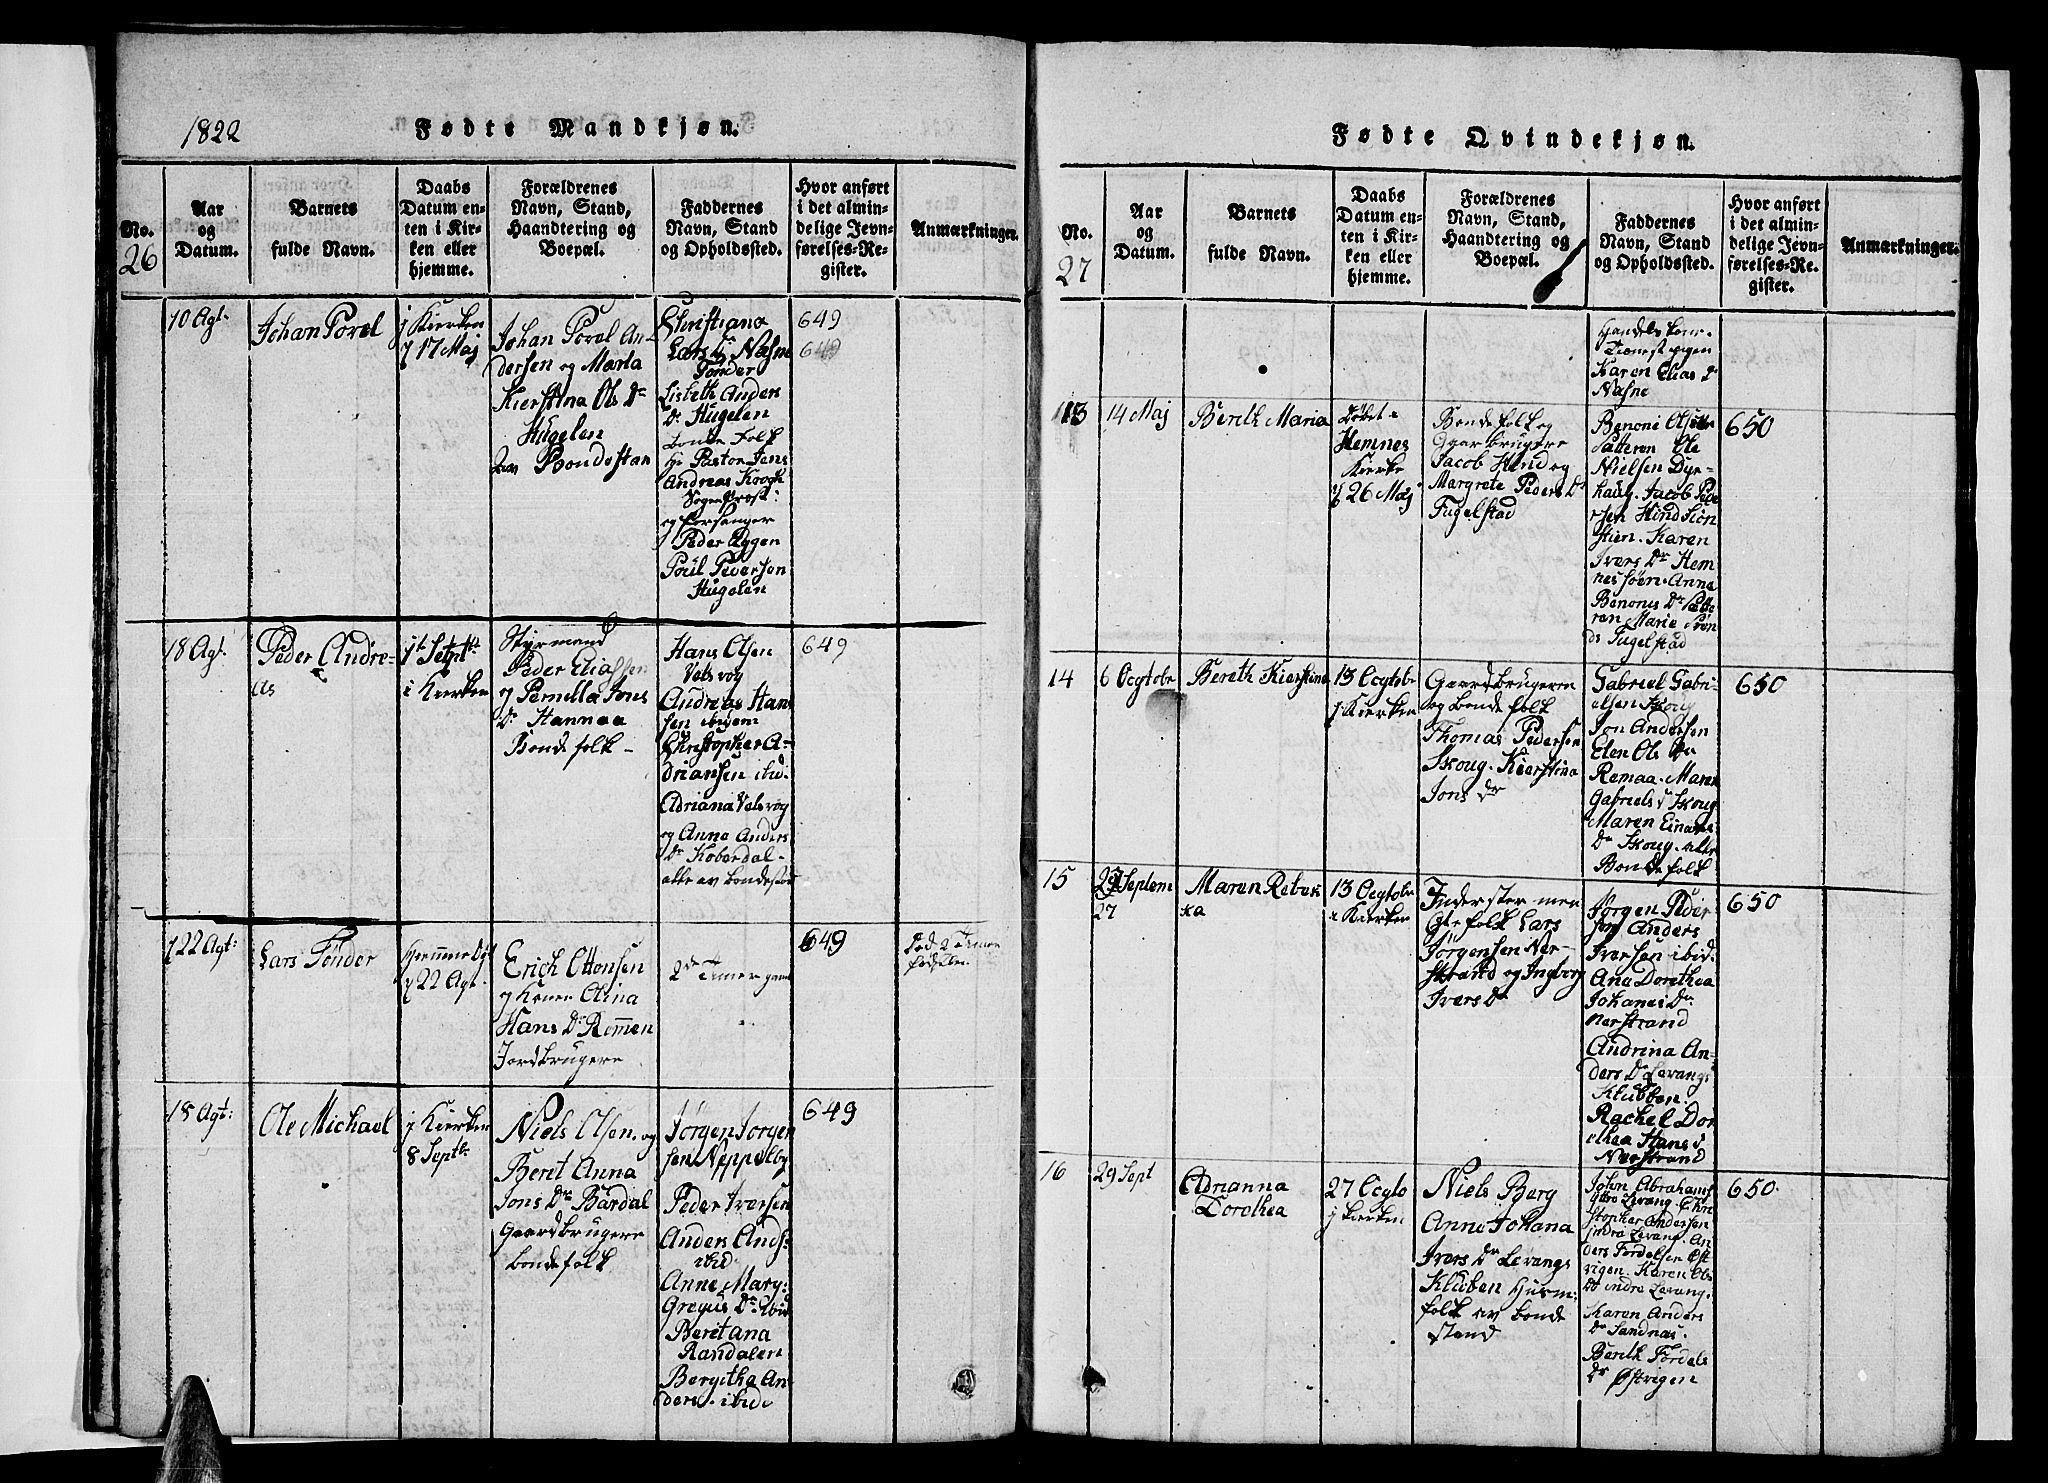 1822
Fødte Mandkjøn.
No.
26
Aar
og
Datum.
Barnets
fulde Navn.
Daabs
Datum en-
ten i Kir-
ken eller
hjemme.
Forældrenes
Navn, Stand,
Haandtering og
Boepæl.
Faddernes
Navn, Stand
og Opholdssted.
Hvor anført
i det almin-
delige Jevn-
førelses-Re-
gister.
Anmærkninger.
10 Agt.
Johan Porel
j Kierken
17 Maj
Johan Porel An-
dersen og Marta
Kierstina Ols Dr
Hugelen
Bondestan
Christiana
Lars Dr Nasne
Tonder
Lisbeth Anders
Dr Hugelen
bonde folk
Hr Pastor Jens
Andreas Krogh
Sogneprest
og forsanger
Peder Aggen
Poul Pedersen
Hugelen
649
649
18 Agt.
Peder Andre-
as
1te Septbr
i Kierken
Styrmand
Peder Eliassen
og Pernilla Jons
Dr Hannaa
Bonde folk -
Hans Olsen
Valsvog
Andreas Han
sen ibidem
Christopher A-
driansen ibid.
Adriana Valsvog
og Anna Anders
Dr Koberdal -
alle av bondestan
649
22 Agt:
Lars Tonder
22 Agt.
Erich Ottonsen
og Konen Olina
Hans Dr Rommen
Jordbrugere
2de Timer
649
18 Agt:
Ole Michael
j Kierken
8 Septbr
Niels Olsen og
Berit Anna
Jons Dr Bardal
Gaardbrugere
bondefolk
Jørgen Jorgen
sen Neppelby
Peder Iversen
Anders Ands:
ibid
Anne Mary:
Gregus Dr ibid
Beritana
Randalen
Bergitha An-
ders. ibid
649
Fødte Qvindekjøn.
No.
27
Aar
og
Datum.
Barnets
fulde Navn.
Daabs
Datum en-
ten i Kir-
ken eller
hjemme.
Forældrenes
Navn, Stand,
Haandtering og
Boepæl.
Faddernes
Navn, Stand
og Opholdssted.
Hvor anført
i det almin-
delige Jevn-
førelses-Re-
gister.
Anmærkninger.
Tienestpigen
Karen Elias Dr
Nasne
13
14 Maj
Berith Maria
Døbet i
Hemnes
Kierke
26 Maj
Bondefolk og
Gaarbrugere
Jacob Hind og
Margrete Peders Dr
Fugelstad
Benoni Olsen
Sætteren Ole
Nielsen Dyr-
haug. Jacob Pede
rsen Hind Sion
stien. Karen
Ivers Dr Hem
nessøen. Anna
Benonis Dr Sætte
ren Marie Aron
Ds Fugelstad
650
14
6 Ocgtobr
Bereth Kierstina
13 Ocgtobr
j Kierken
Gaardbrugeren
og bonde folk
Thomas Pedersen
Skoug. Kierstina
Jons dr
Gabriel Gabri-
elsen Skoug
Jon Andersen
Elen Ols Dr
Remaa. Maren
Gabriels d Skoug
Maren Einars
Dr Skoug. alle
Bonde folk
650
15
27 Septem
27
Maren Rebek
ka
13 Ocgtobr
i Kierken
Inderster men
Gte folk Lars
Jørgensen Ner-
strand og Ingborg
Ivers Dr
Jørgen Peder
sen Anders
Iversen ibid.
Ana Dorethea
Johanes Dr
nerstrand
Andrina An-
ders Dr Levangs
Klubben.
Rachel Dor
ethea Hans d
Nerstrand
650
16
29 Sept
Adrianna
Dorothea
27 Ocgto
j kierken
Niels Berg
Anne Johana
Ivers Dr Levangs
Kluben Husm:
folk av bonde
stand
John Abrahams
Ytre Levang. Chri
stopher Andersen
Indre Levang. An
ders Fordelsen Øst
vigen. Karen Ols
Dr indre Levang.
Karen Anders
Dr Sandnas.
Berith Fordels
Dr Østvigen
650.